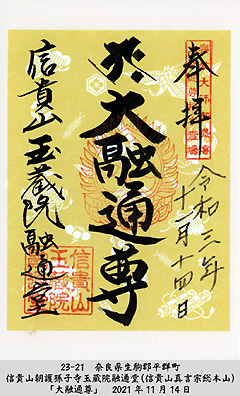 奉拝
令和三年
十一月十四日
大融通尊
信貴山玉蔵院融通堂
信貴山
玉蔵院
23-21 奈良県生駒郡平群町
信貴山朝護孫子寺玉蔵院融通堂(信貴山真言宗総本山)
「大融通尊」 2021年11月14日